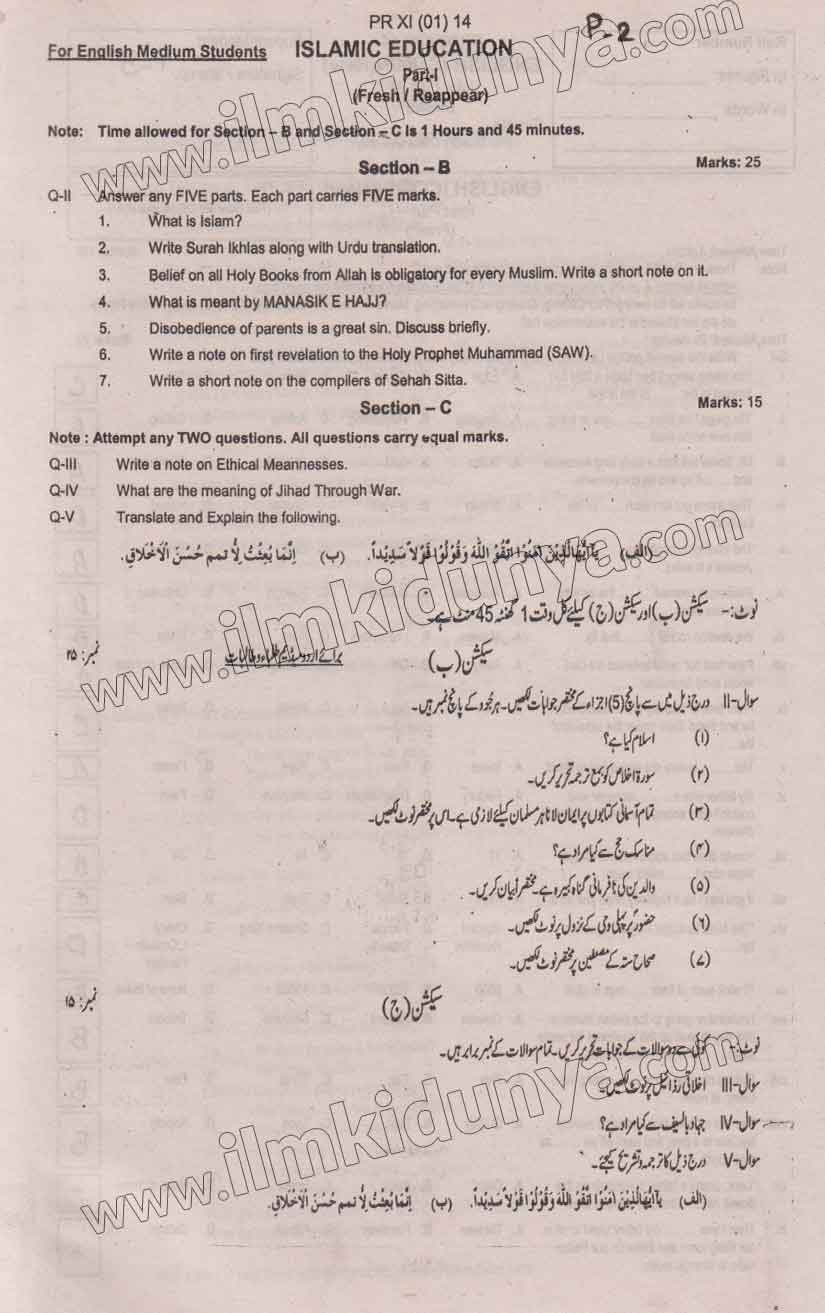 PR XI (01) 14
P-2
For English Medium Students ISLAMIC EDUCATION
Part-I
(Fresh / Reappear)
Note: Time allowed for Section – B and Section – C Is 1 Hours and 45 minutes.
Section – B Marks: 25
Q-II Answer any FIVE parts. Each part carries FIVE marks.
1. What is Islam?
2. Write Surah Ikhlas along with Urdu translation.
3. Belief on all Holy Books from Allah is obligatory for every Muslim. Write a short note on it.
4. What is meant by MANASIK E HAJJ?
5. Disobedience of parents is a great sin. Discuss briefly.
6. Write a note on first revelation to the Holy Prophet Muhammad (SAW).
7. Write a short note on the compilers of Sehah Sitta.
Section – C Marks: 15
Note : Attempt any TWO questions. All questions carry equal marks.
Q-III Write a note on Ethical Meannesses.
Q-IV What are the meaning of Jihad Through War.
Q-V Translate and Explain the following.
(الف) یآ اَیُّھَاالَّذِیْنَ اٰمَنُوْا اتَّقُوْ اللّٰهَ وَقُوْلُوْا قَوْلاً سَدِیْداً۔ (ب) اِنَّمَا بُعِثْتُ لِاُ تمم حُسْنَ الْاَخْلَاقِ۔
نوٹ:- سیکشن (ب) اور سیکشن (ج) کیلئے کل وقت 1 گھنٹہ 45 منٹ ہے۔
سیکشن (ب) برائے اردو میڈیم طلباء و طالبات نمبر: ۲۵
سوال-II درج ذیل میں سے پانچ (5) اجزاء کے مختصر جوابات لکھیں۔ ہر جُزو کے پانچ نمبر ہیں۔
(۱) اسلام کیا ہے؟
(۲) سورۃ اخلاص کو بمع ترجمہ تحریر کریں۔
(۳) تمام آسمانی کتابوں پر ایمان لانا ہر مسلمان کیلئے لازمی ہے۔ اس پر مختصر نوٹ لکھیں۔
(۴) مناسک حج سے کیا مراد ہے؟
(۵) والدین کی نافرمانی گناہ کبیرہ ہے۔ مختصر اًبیان کریں۔
(۶) حضورؐ پر پہلی وحی کے نزول پر نوٹ لکھیں۔
(۷) صحاح ستہ کے مصنفین پر مختصر نوٹ لکھیں۔
سیکشن (ج) نمبر: ۱۵
نوٹ:- کوئی سے دو سوالات کے جوابات تحریر کریں۔ تمام سوالات کے نمبر برابر ہیں۔
سوال-III اخلاقی رذائل پر نوٹ لکھیں۔
سوال-IV جہاد بالسیف سے کیا مراد ہے؟
سوال-V درج ذیل کا ترجمہ و تشریح کیجئے۔
(الف) یآ اَیُّھَاالَّذِیْنَ اٰمَنُوْا اتَّقُوْ اللّٰهَ وَقُوْلُوْا قَوْلاً سَدِیْداً۔ (ب) اِنَّمَا بُعِثْتُ لِاُ تمم حُسْنَ الْاَخْلَاقِ۔
www.ilmkidunya.com
www.ilmkidunya.com
www.ilmkidunya.com